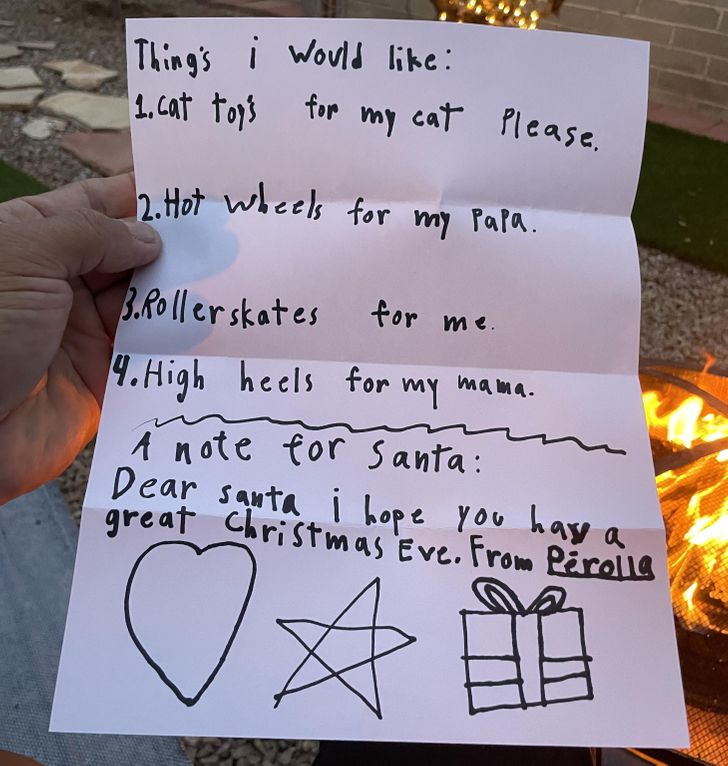 Thing's i would like:
1.cat toy's for my cat Please.
2.Hot wheels for my PaPa.
3.Rollerskates for me.
4.High heels for my mama.
A note for santa:
Dear santa i hope you hav a
great Christmas Eve. From Pérolla